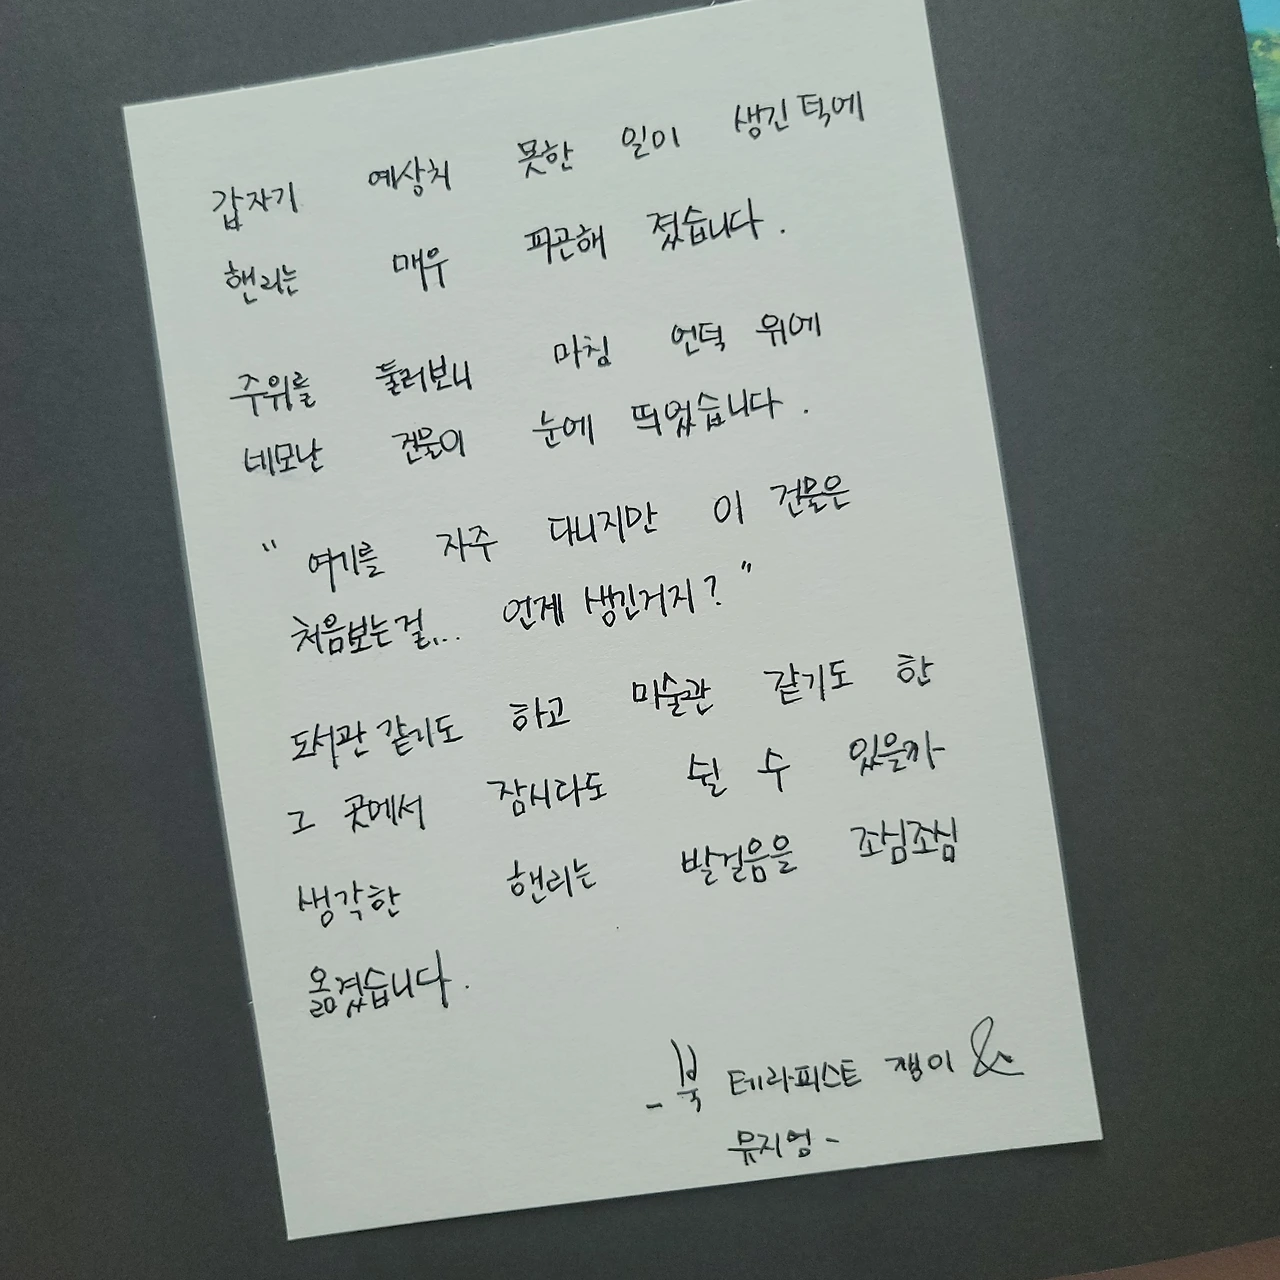 갑자기 예상치 못한 일이 생긴 턱에
핸리는 매우 피곤해 졌습니다.
주위를 둘러보니 마침 언덕 위에
네모난 건물이 눈에 띄었습니다.
" 여기를 자주 다니지만 이 건물은
처음보는걸... 언제 생긴거지? "
도서관 같기도 하고 미술관 같기도 한
그 곳에서 잠시라도 쉴 수 있을까
생각한 핸리는 발걸음을 조심조심
옮겼습니다.
- 북 테라피스트 잼이 &
뮤지엄 -